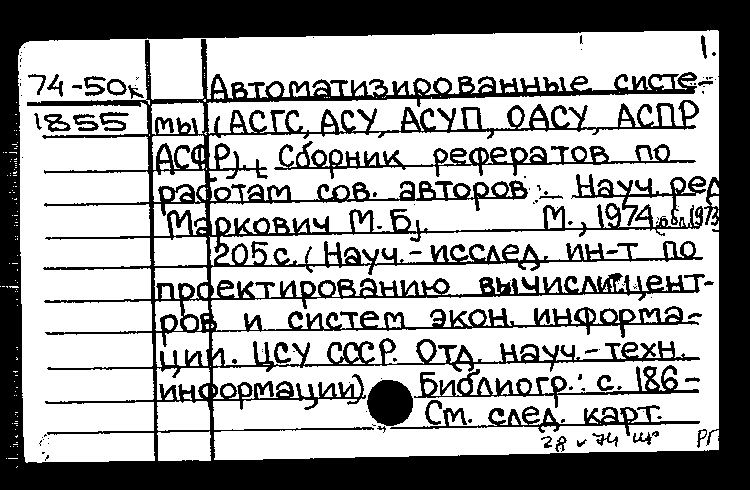 1.
74-50к Автоматизированные систе-
1855 мы (АСГС, АСУ, АСУП, ОАСУ, АСПР
АСФР). [Сборник рефератов по
работам сов. авторов. Науч. ред.
Маркович М.Б]. М., 1974, обл. 1973
205 с. (Науч.-исслед. ин-т по
проектированию вычислит. цент-
ров и систем экон. информа-
ции. ЦСУ СССР. Отд. науч.-техн.
информации) Библиогр.: с. 186-
См. след. карт.
28 v 74